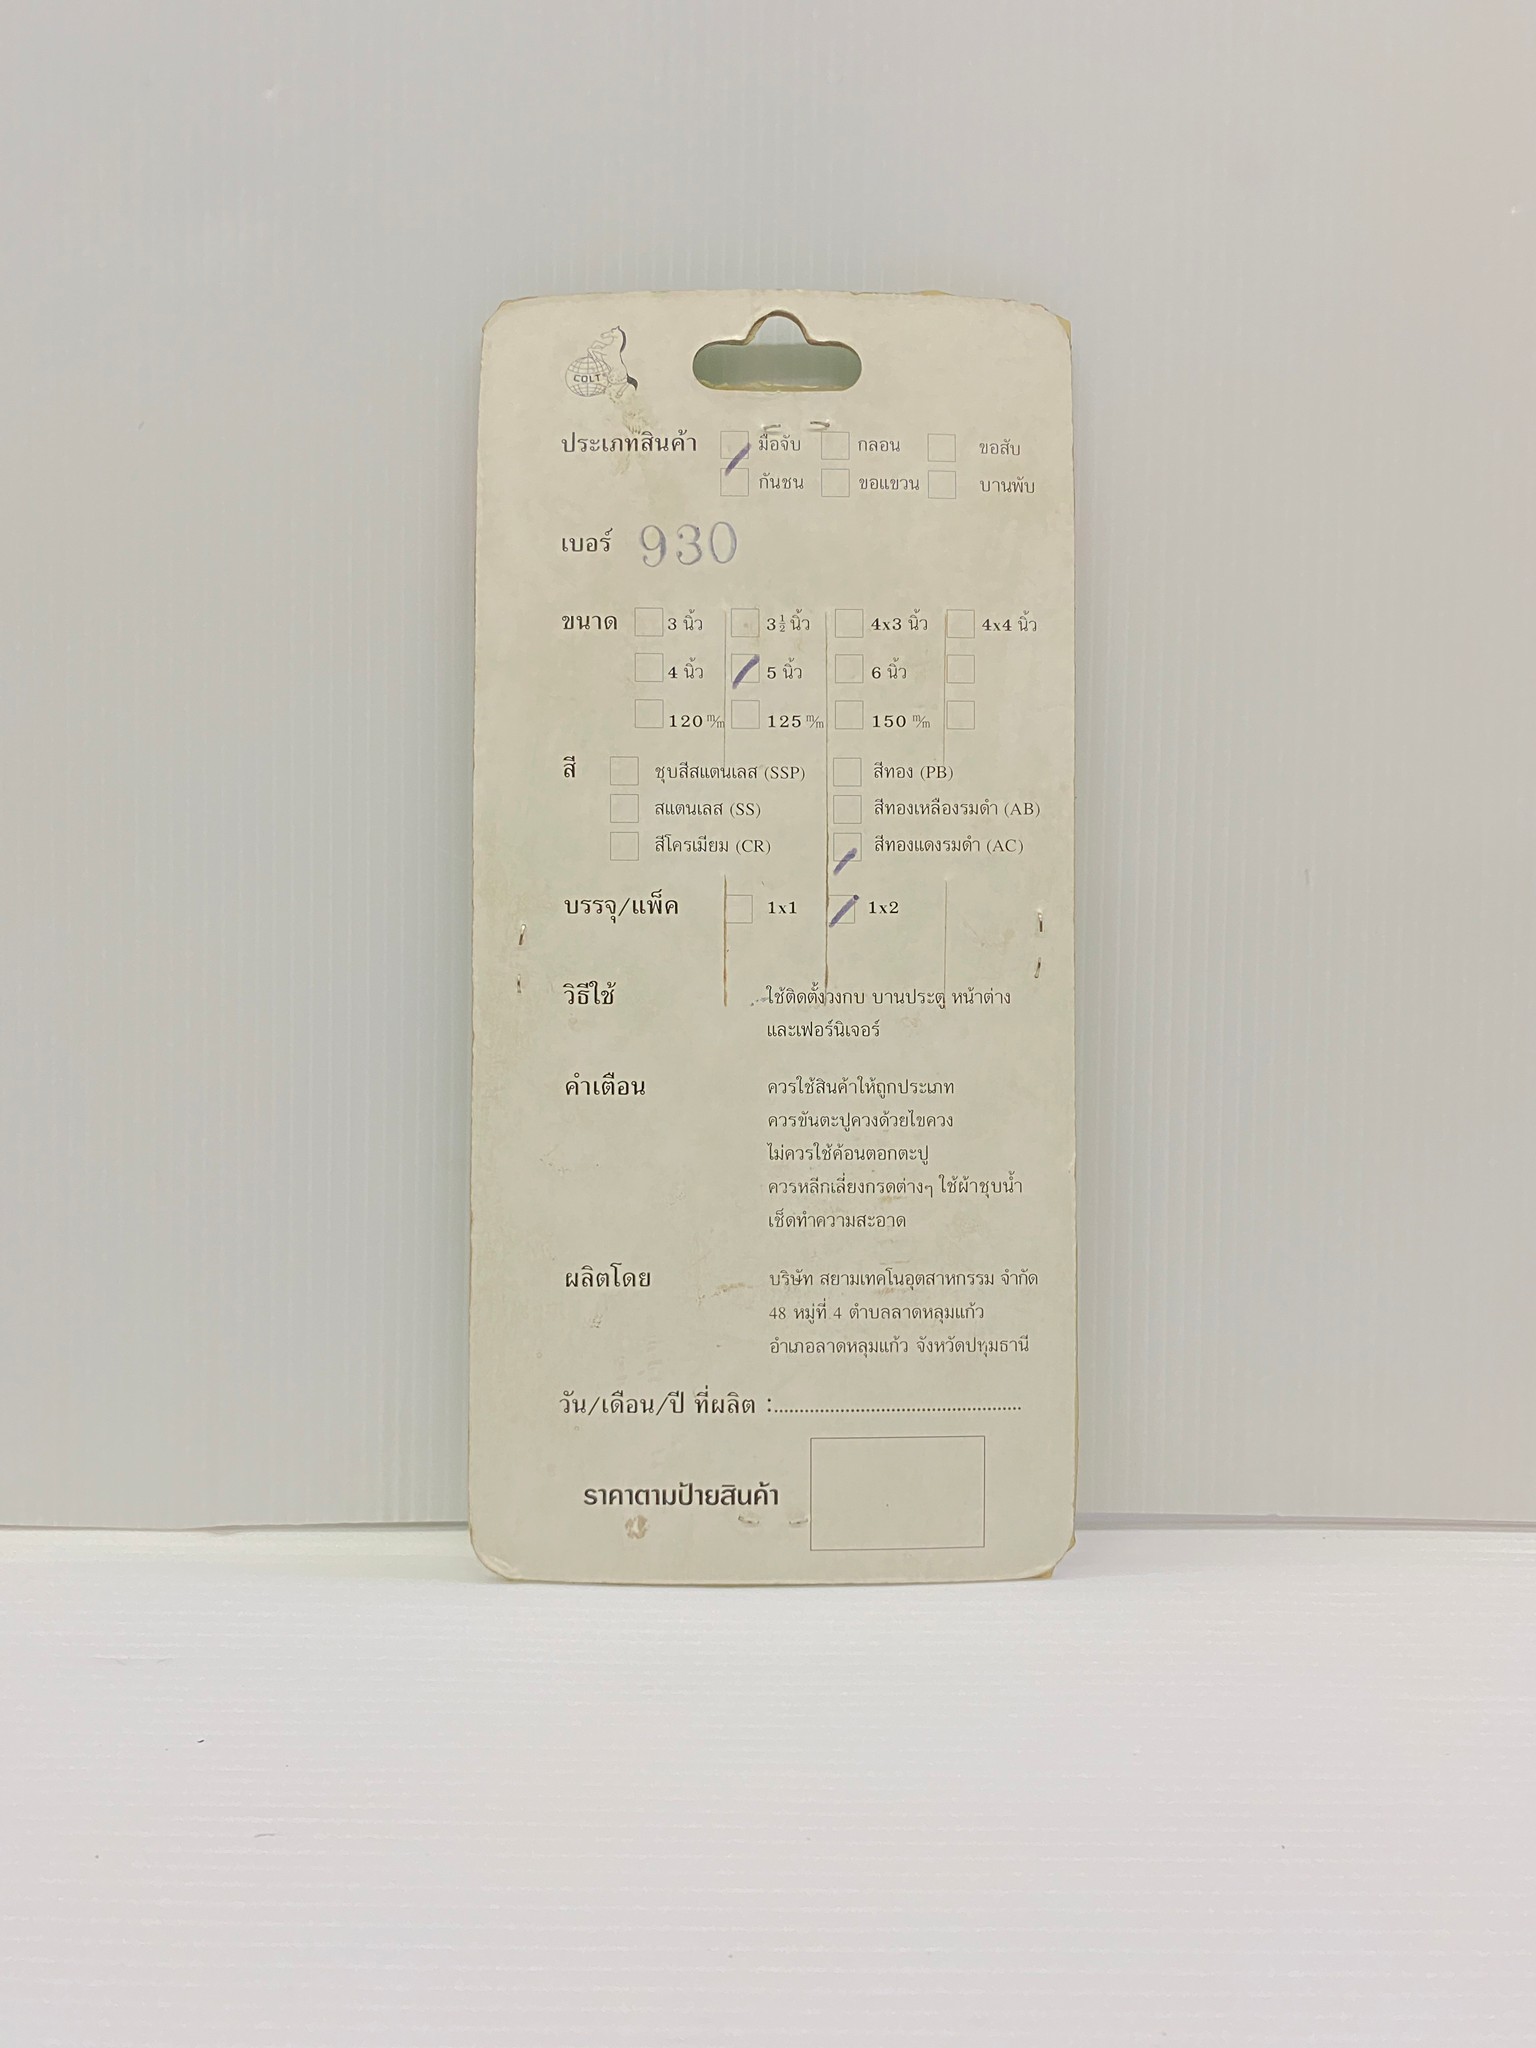 COLT
ประเภทสินค้า มือจับ กลอน ขอสับ
กันชน ขอแขวน บานพับ
เบอร์ 930
ขนาด 3 นิ้ว 3½ นิ้ว 4x3 นิ้ว 4x4 นิ้ว
4 นิ้ว 5 นิ้ว 6 นิ้ว
120 m/m 125 m/m 150 m/m
สี ชุบสีสแตนเลส (SSP) สีทอง (PB)
สแตนเลส (SS) สีทองเหลืองรมดำ (AB)
สีโครเมียม (CR) สีทองแดงรมดำ (AC)
บรรจุ/แพ็ค 1x1 1x2
วิธีใช้ ใช้ติดตั้งวงกบ บานประตู หน้าต่าง
และเฟอร์นิเจอร์
คำเตือน ควรใช้สินค้าให้ถูกประเภท
ควรขันตะปูควงด้วยไขควง
ไม่ควรใช้ค้อนตอกตะปู
ควรหลีกเลี่ยงกรดต่างๆ ใช้ผ้าชุบน้ำ
เช็ดทำความสะอาด
ผลิตโดย บริษัท สยามเทคโนอุตสาหกรรม จำกัด
48 หมู่ที่ 4 ตำบลลาดหลุมแก้ว
อำเภอลาดหลุมแก้ว จังหวัดปทุมธานี
วัน/เดือน/ปี ที่ผลิต :................................................
ราคาตามป้ายสินค้า